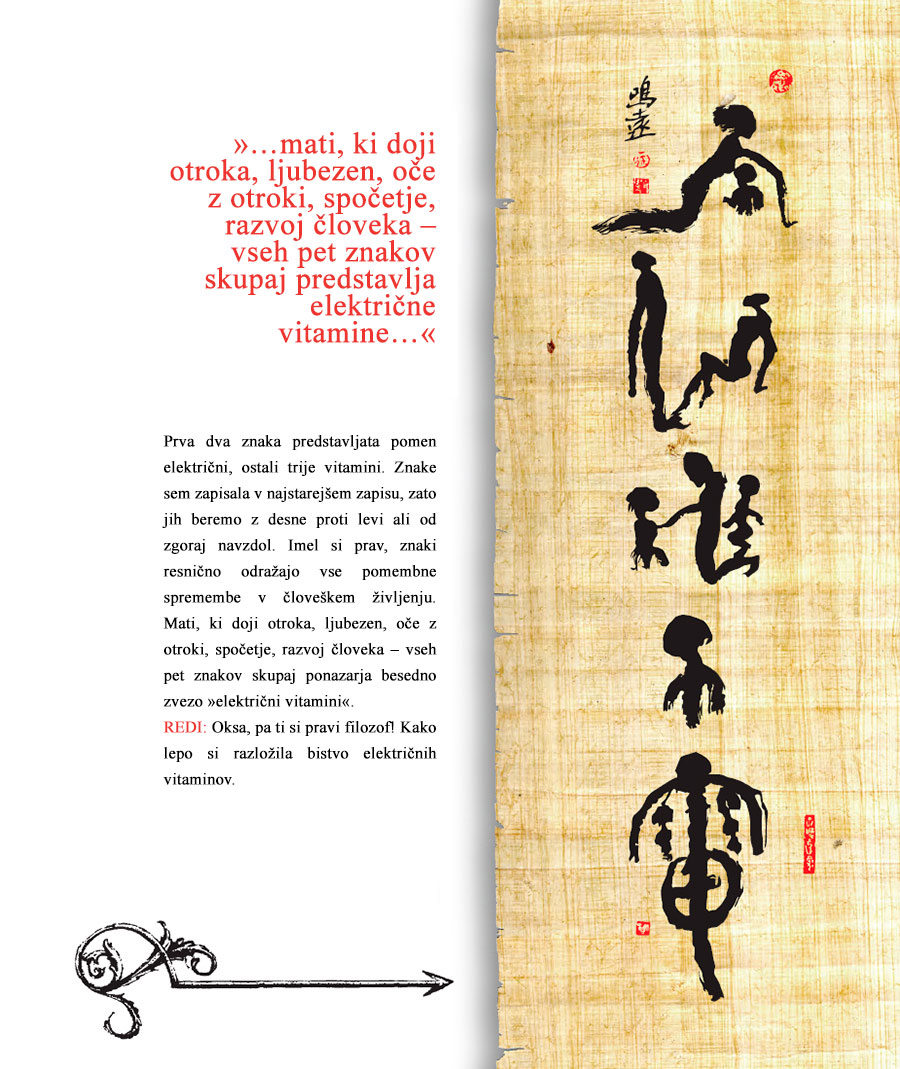 »…mati, ki doji
otroka, ljubezen, oče
z otroki, spočetje,
razvoj človeka –
vseh pet znakov
skupaj predstavlja
električne
vitamine…«
Prva dva znaka predstavljata pomen
električni, ostali trije vitamini. Znake
sem zapisala v najstarejšem zapisu, zato
jih beremo z desne proti levi ali od
zgoraj navzdol. Imel si prav, znaki
resnično odražajo vse pomembne
spremembe v človeškem življenju.
Mati, ki doji otroka, ljubezen, oče z
otroki, spočetje, razvoj človeka – vseh
pet znakov skupaj ponazarja besedno
zvezo »električni vitamini«.
REDI: Oksa, pa ti si pravi filozof! Kako
lepo si razložila bistvo električnih
vitaminov.